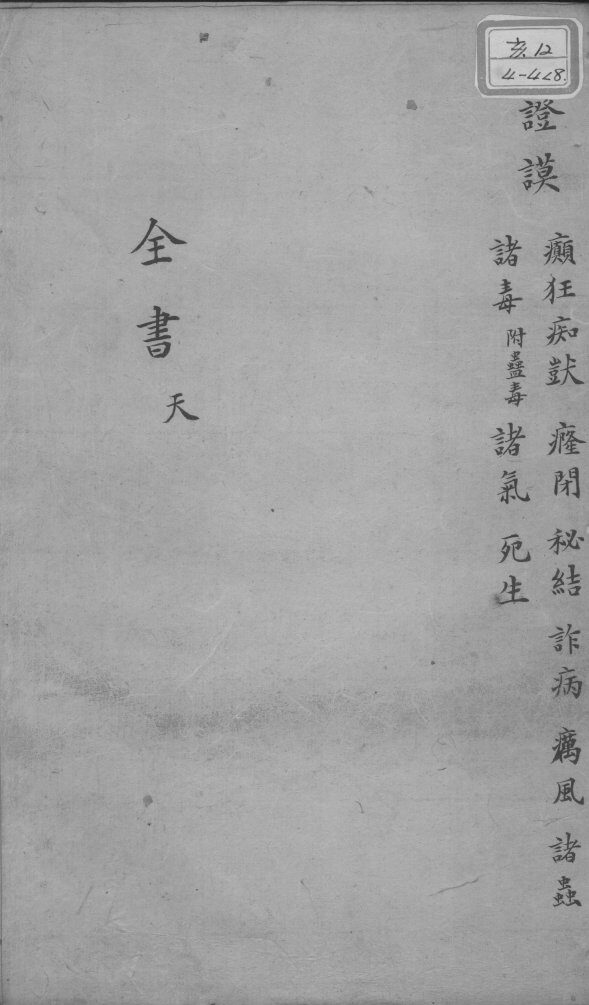 亥.12
4-428.
證謨
癲狂痴獃 癃閉 秘結 詐病 癘風 諸蟲
諸毒 附蠱毒 諸氣 死生
全書 天